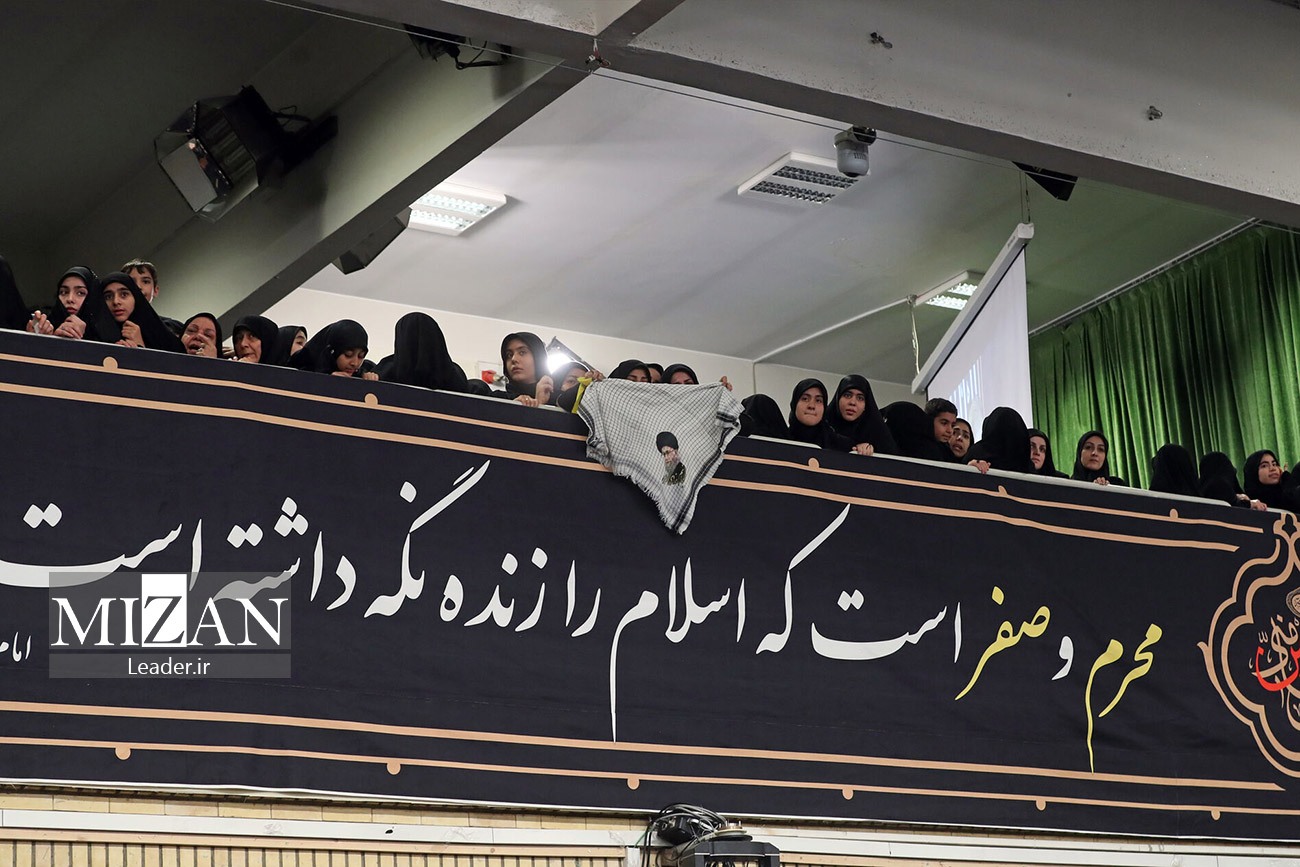 محرم و صفر است که اسلام را زنده نگه داشته است
MIZAN
Leader.ir